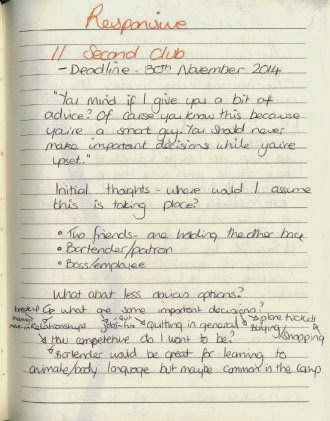 Responsive
// Second Club
- Deadline - 30th November 2014
"You mind if I give you a bit of
advice? Of cause you know this because
you're a smart guy. You should never
make important decisions while you're
upset."
Initial thoughts - where would I assume
this is taking place?
• Two friends - one holding the other back
• Bartender/patron
• Boss/employee
What about less obvious options?
what are some important decisions?
break up
Relationships quitting in general plane tickets
buying/shopping
How competetive do I want to be?
Bartender would be great for learning to
animate/body language but maybe common in the comp